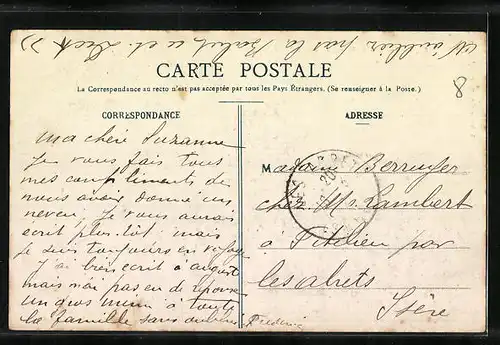 CARTE POSTALE
La Correspondance au recto n'est pas acceptée par tous les Pays Étrangers. (Se renseigner à la Poste.)
8
CORRESPONDANCE
ma chère Suzanne
Je vous fais tous
mes compliments de
nous avoir donné un
neveu. Je vous aurais
écrit plus tôt mais
je suis toujours en voyage
J'ai bien écrit à august
mais n'ai pas eu de réponse
un gros mimi à toute
la famille sans oublier
Frédéric
ADRESSE
Madame Berruyer
chez Mr Lambert
à par
les abrets
Isère